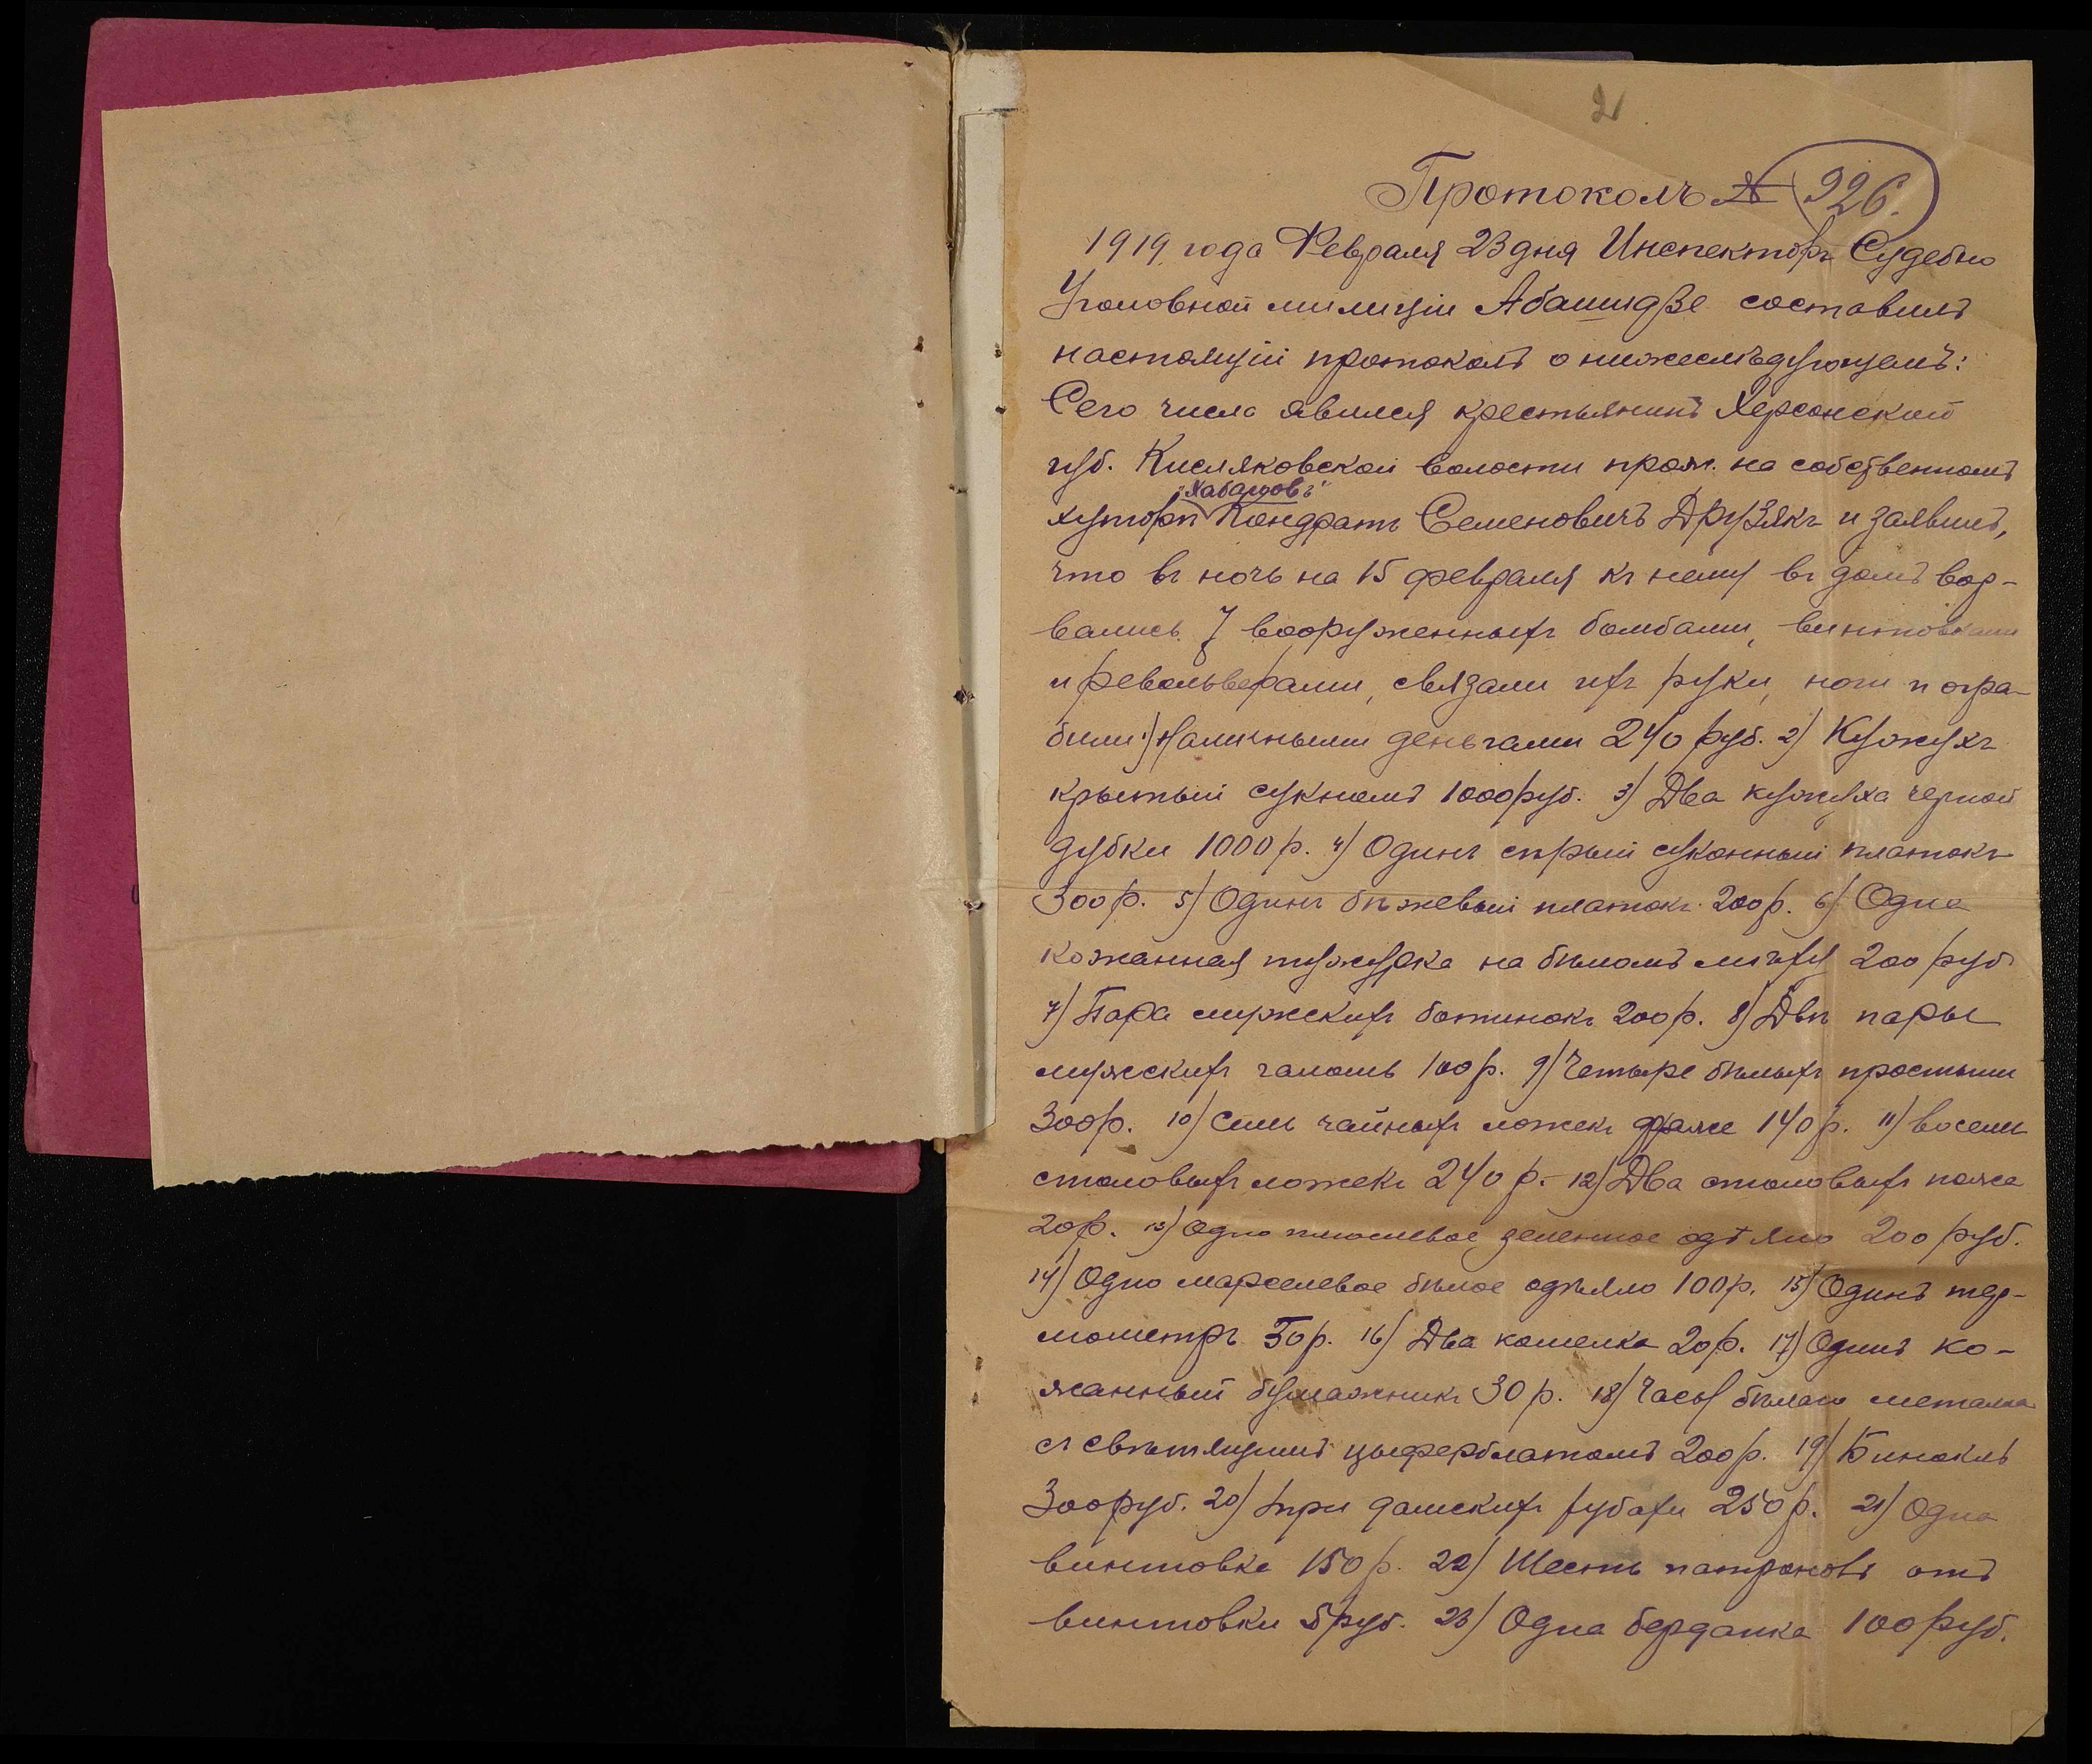 2
Протоколъ № 926.
1919 года Февраля 23 дня Инспекторъ Судебно
Уголовной милиціи Абашидзе составилъ
настоящій протоколъ о нижеслѣдующемъ:
Сего числа явился крестьянинъ Херсонской
губ. Кисляковской волости прож. на собственномъ
„Хабаловъ"
хуторѣ Кондратъ Семеновичъ Друзякъ и заявилъ,
что въ ночь на 15 февраля къ нему въ домъ вор-
вались 7 вооруженныхъ бомбами, винтовками
и револьверами, связали ихъ руки, ноги и огра-
били 1) Наличными деньгами 240 руб. 2) Кужухъ
крытый сукномъ 1000 руб. 3) Два кужуха черной
дубки 1000 р. 4) Одинъ сѣрый суконный платокъ
300 р. 5) Одинъ бѣжевый платокъ 200 р. 6) Одна
кожанная тужурка на бѣломъ мѣху 200 руб
7) Пара мужскихъ ботинокъ 200 р. 8) Двѣ пары
мужскихъ галошъ 100 р. 9) Четыре бѣлыхъ простыни
300 р. 10) Семь чайныхъ ложекъ фраже 140 р. 11) восемь
столовыхъ ложекъ 240 р. 12) Два столовыхъ ножа
20 р. 13) Одно плюшевое зеленное одѣяло 200 руб.
14) Одно марселевое бѣлое одѣяло 100 р. 15) Одинъ тер-
мометръ 50 р. 16) Два кошелка 20 р. 17) Одинъ ко-
жанный бумажникъ 30 р. 18) Часы бѣлаго металла
съ свѣтящимъ цыферблатомъ 200 р. 19) Бинокль
300 руб. 20) три дамскихъ рубахи 250 р. 21) Одна
винтовка 150 р. 22) Шесть патроновъ отъ
винтовки 5 руб. 23) Одна берданка 100 руб.